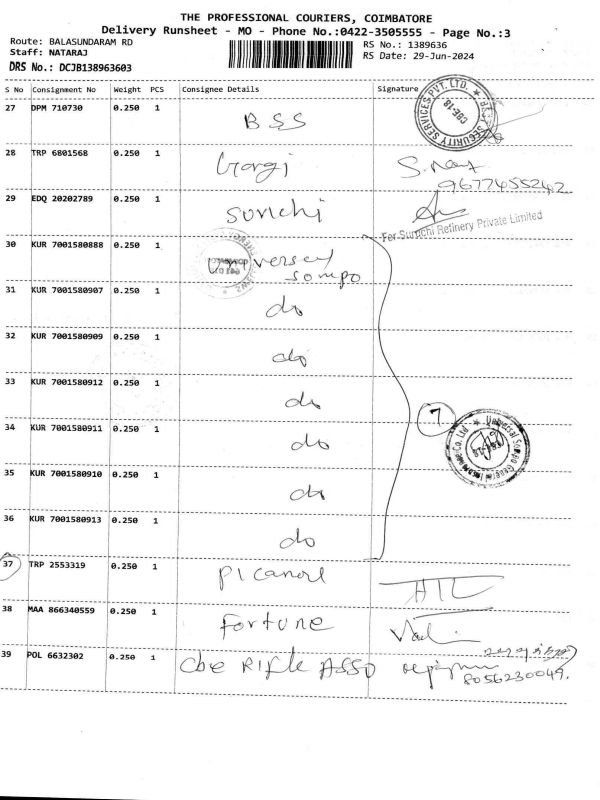 THE PROFESSIONAL COURIERS, COIMBATORE
Delivery Runsheet - MO - Phone No.:0422-3505555 - Page No.:3
Route: BALASUNDARAM RD
RS No.: 1389636
Staff: NATARAJ
RS Date: 29-Jun-2024
DRS No.: DCJB138963603
S No Consignment No Weight PCS Consignee Details Signature
27 DPM 710730 0.250 1 BSS
SECURITY SERVICES PVT. LTD.
CBE-18
28 TRP 6801568 0.250 1 Gorgi
9677455242
29 EDQ 20202789 0.250 1 Suruchi
For Suruchi Refinery Private Limited
30 KUR 7001580888 0.250 1 Universel
sompo
31 KUR 7001580907 0.250 1 do
32 KUR 7001580909 0.250 1 do
33 KUR 7001580912 0.250 1 do
7
34 KUR 7001580911 0.250 1 do
Universal Sompo General Insurance Co. Ltd
35 KUR 7001580910 0.250 1 do
36 KUR 7001580913 0.250 1 do
37 TRP 2553319 0.250 1 Picanol
38 MAA 866340559 0.250 1 Fortune
39 POL 6632302 0.250 1 Cbe Rifle ASSO
8056230049.